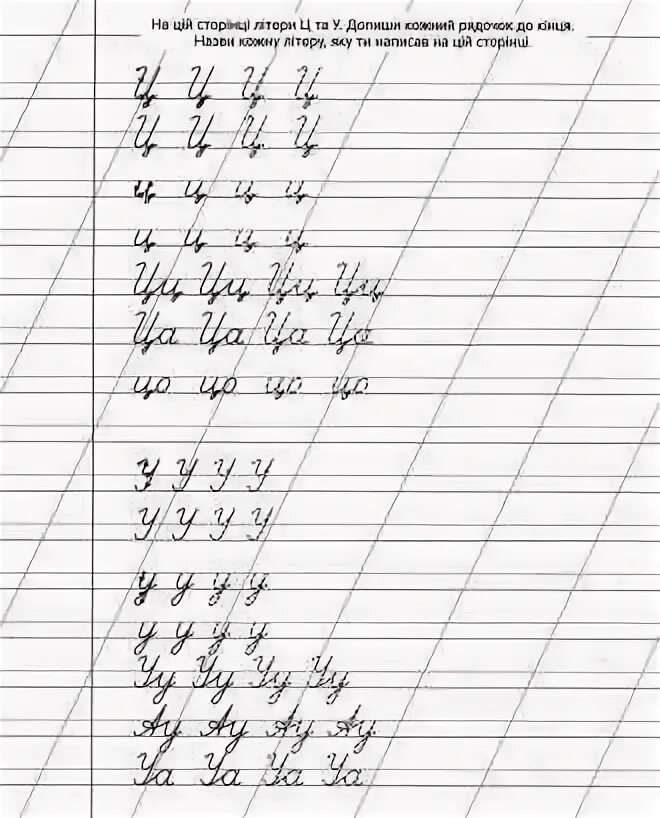 На цій сторінці літори Ц та У. Допиши кожний рядочок до кінця.
Назви кожну літору, яку ти написав на цій сторінці
Ц Ц Ц Ц
Ц Ц Ц Ц
ц ц ц ц
ц ц ц ц
Цц Цц Цц Цц
Ца Ца Ца Ца
цо цо цо цо
У У У У
У У У У
у у у у
у у у у
Уу Уу Уу Уу
Ау Ау Ау Ау
Уа Уа Уа Уа